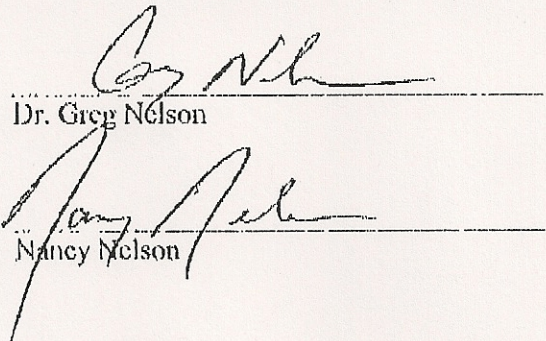 Greg Nelson
Dr. Greg Nelson
Nancy Nelson
Nancy Nelson